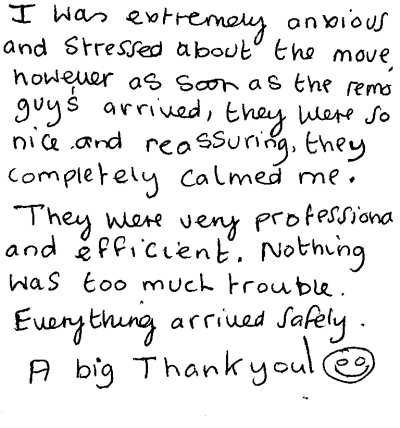 I was extremely anxious
and stressed about the move,
however as soon as the remo
guys arrived, they were so
nice and reassuring, they
completely calmed me.
They were very professiona
and efficient. Nothing
was too much trouble.
Everything arrived safely.
A big Thankyou!